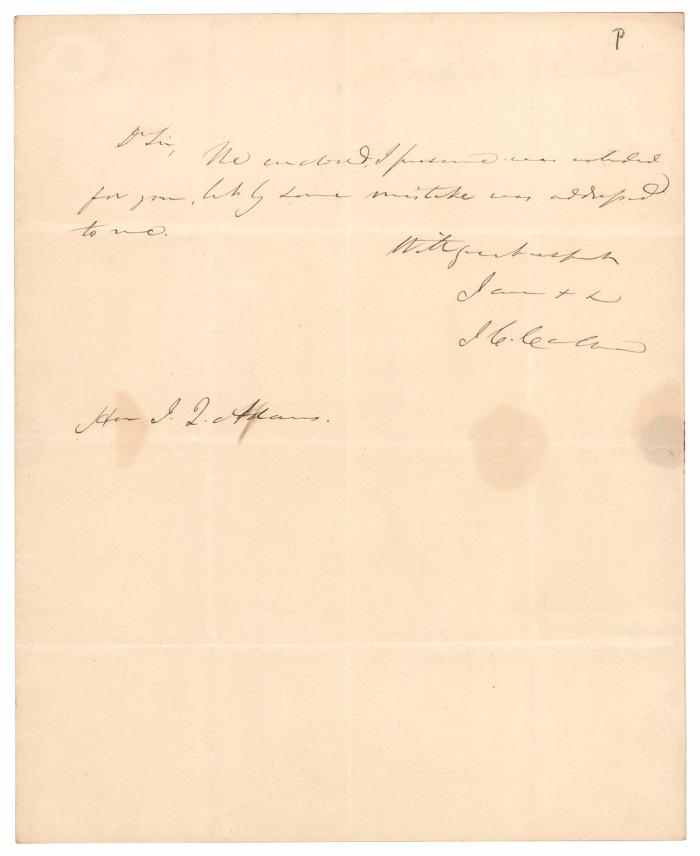 P
Dr Sir,
The enclosed, I presume was intended
for you, but by some mistake was addressed
to me.
With great respect
I am & &
J. C. Calhoun
Hon J. Q. Adams.